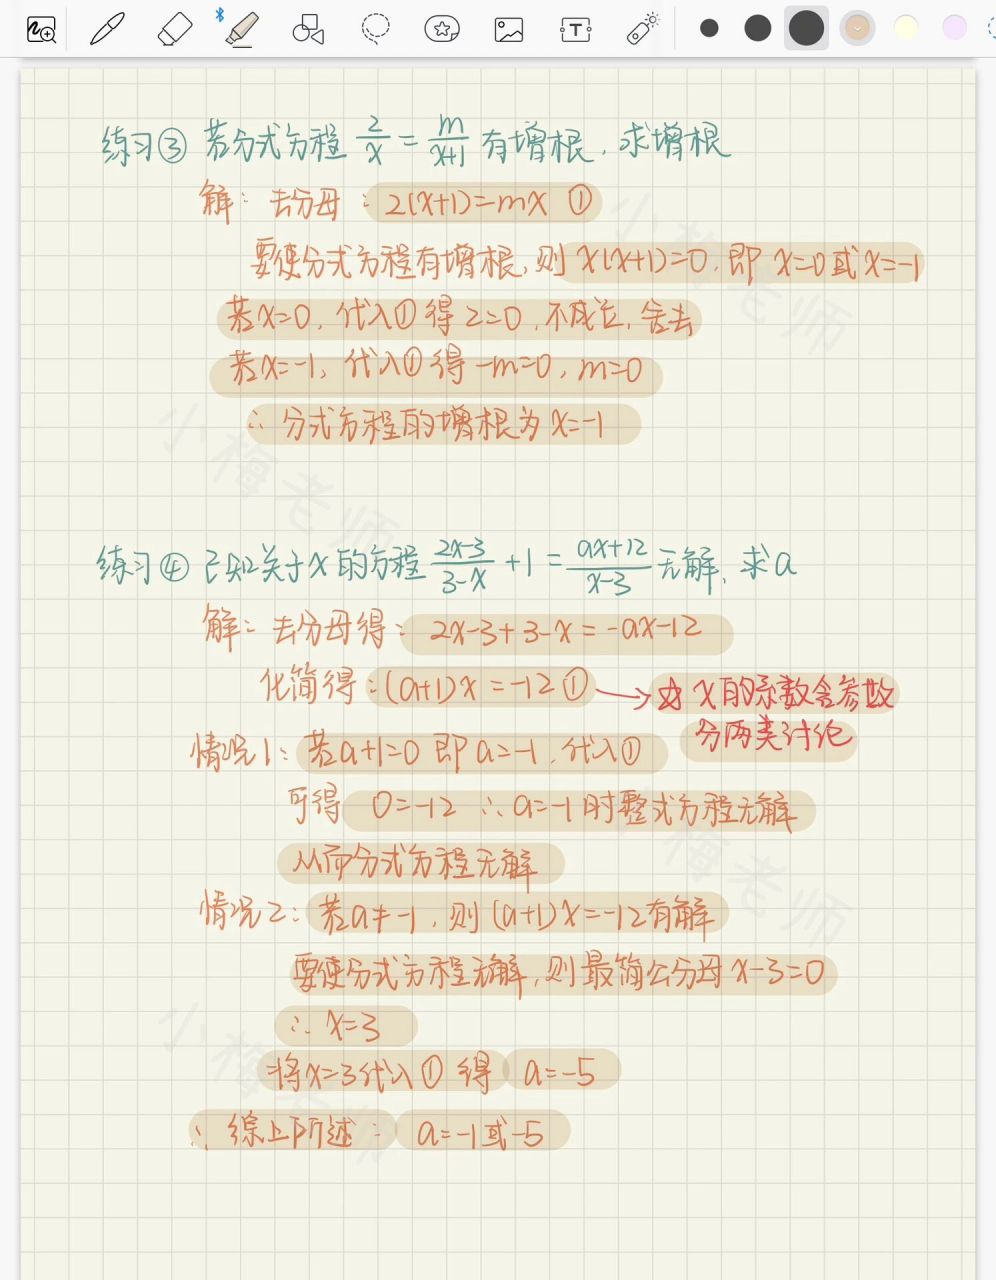 练习③ 若分式方程 2/x = m/(x+1) 有增根，求增根
解：去分母：2(x+1)=mx ①
要使分式方程有增根，则x(x+1)=0，即x=0或x=-1
若x=0，代入①得2=0，不成立，舍去
若x=-1，代入①得-m=0，m=0
∴分式方程的增根为x=-1
练习④ 已知关于x的方程 (2x-3)/(3-x) +1= (ax+12)/(x-3) 无解，求a
解：去分母得：2x-3+3-x=-ax-12
化简得：(a+1)x=-12 ① → ☆ x的系数含参数
分两类讨论
情况1：若a+1=0 即a=-1，代入①
可得 0=-12 ∴a=-1时整式方程无解
从而分式方程无解
情况2：若a≠-1，则(a+1)x=-12有解
要使分式方程无解，则最简公分母x-3=0
∴x=3
将x=3代入①得 a=-5
∴综上所述：a=-1或-5
小梅老师
小梅老师
小梅老师
小梅老师